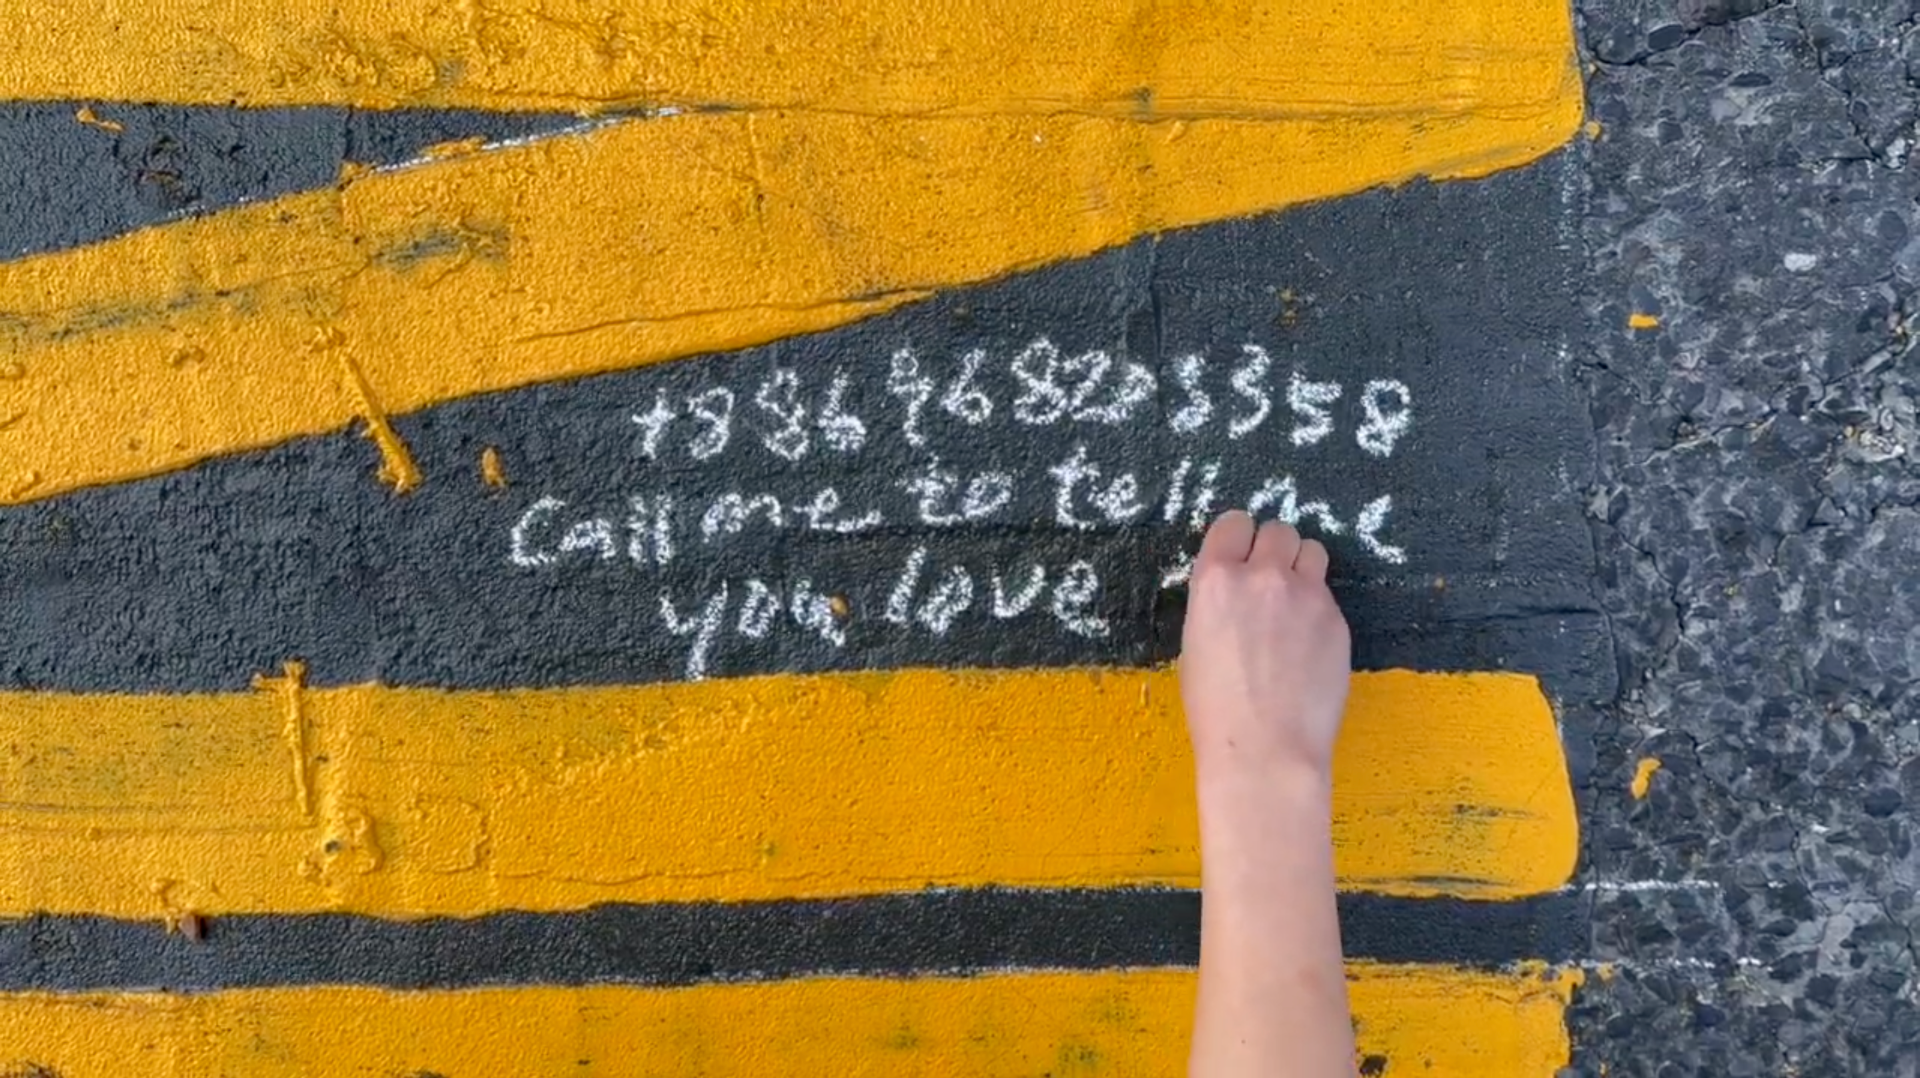 +886968203358
Call me to tell me
you love